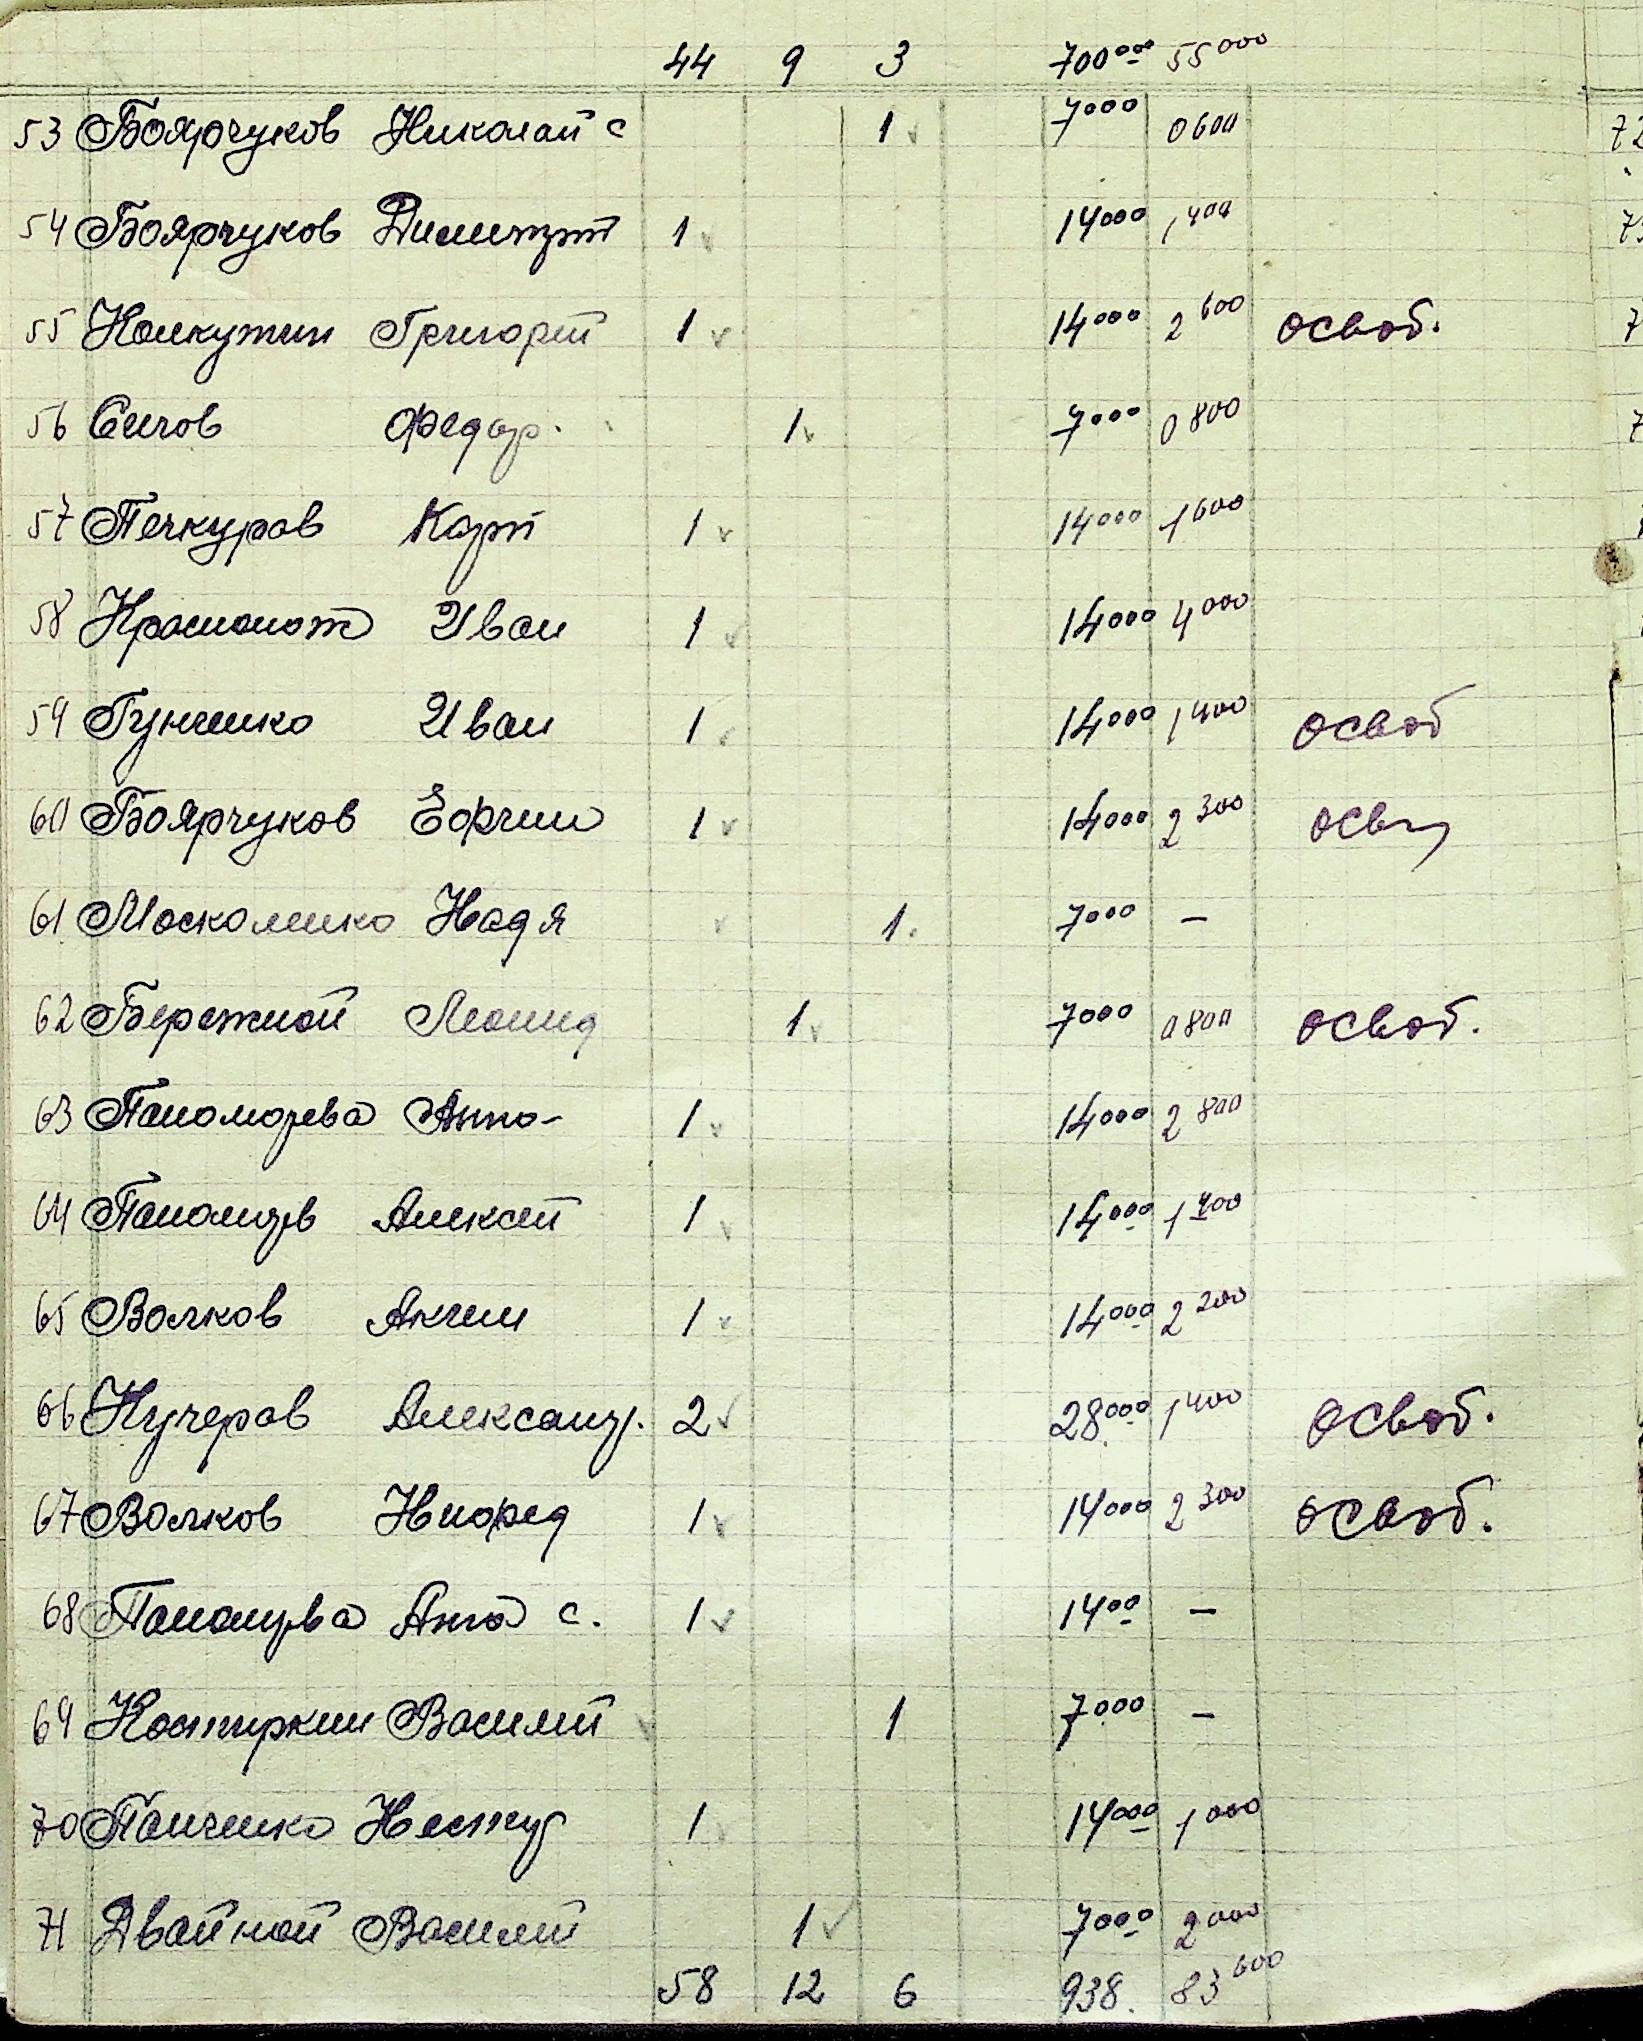 44 9 3 700000 55000
53 Боярчуков Николай с 1 7000 0600
54 Боярчуков Димитрт 1 14000 1400
55 Григорий 1 14000 2600 освоб.
56 Сичов Федор. 1 7000 0800
57 Печкуров Карп 1 14000 1600
58 Иван 1 14000 4000
59 Гунченко Иван 1 14000 1400 освоб
60 Боярчуков Ефчим 1 14000 2300
61 Надя 1. 7000 –
62 Бережной Леонид 1 7000 0800 освоб.
63 Панаморева Анна- 1 14000 2800
64 Алексей 1 14000 1400
65 Волков Акчим 1 14000 2200
66 Кучеров Александр. 2 28000 1400 освоб.
67 Волков 1 14000 2300 освоб.
68 Анна с. 1 1400 –
69 Василий 1 7000 –
70 Панченко Нестур 1 14000 1000
71 Двайной Василий 1 7000 2000
58 12 6 938. 83600
72